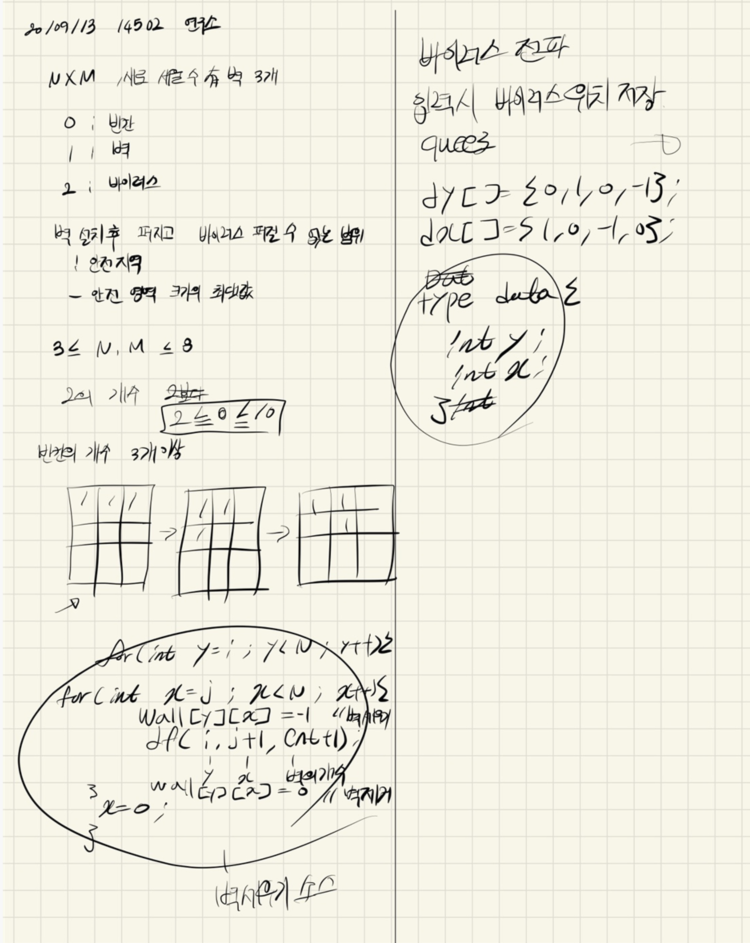 20/09/13 14502 연구소
N X M , 새로 세울 수 有 벽 3개
0 ; 빈칸
1 ; 벽
2 ; 바이러스
벽 설치 후 퍼지고 바이러스 퍼질 수 없는 범위
! 안전지역
- 안전 영역 크기의 최댓값
3 ≤ N, M ≤ 8
2의 개수
2 ≦ 0 ≦ 10
빈칸의 개수 3개 이상
1 1 1 → 1 1 1 → 1 1 1
for(int y=i ; y<N ; y++){
for(int x=j ; x<N ; x++){
wall[y][x] =-1 "벽세우기
df( i, j+1, cnt+1);
y x 벽의개수
wall[y][x] = 0 // 벽제거
}
x=0 ;
}
벽세우기 소스
바이러스 전파
입력시 바이러스 위치 저장
dy[]= {0,1,0,-1};
dx[]={1,0,-1,0};
type data {
int y;
int x;
}